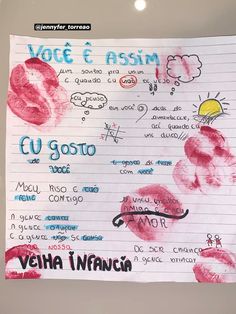 @jennyfer_torreao
VOCÊ É ASSIM
um sonho pra mim
e quando eu não te vejo
eu penso
em você
desde o
amanhecer,
até quando eu
me deito
EU GOSTO
de
VOCÊ
E gosto de ficar
com você
MEU RISO É tão
feliz
CONTIGO
O MEU melhor
AMIGO É o meu
AMOR
A GENTE canta
A GENTE dança
E A GENTE não SE cansa
DE SER CRIANÇA
A GENTE brinca
NA nossa
VELHA INFANCIA